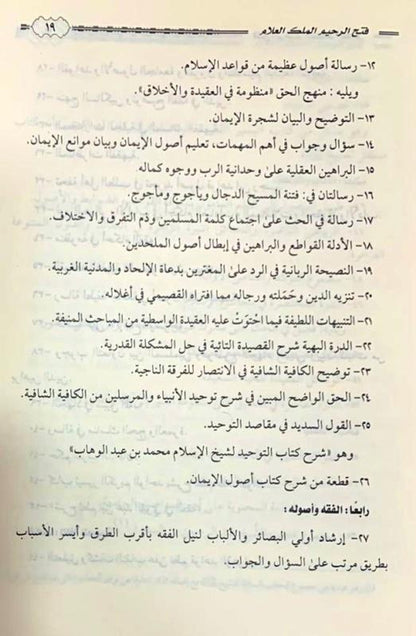 فتح الرحيم الملك العلام
١٩
١٢- رسالة أصول عظيمة من قواعد الإسلام.
ويليه : منهج الحق «منظومة في العقيدة والأخلاق».
١٣- التوضيح والبيان لشجرة الإيمان.
١٤- سؤال وجواب في أهم المهمات، تعليم أصول الإيمان وبيان موانع الإيمان.
١٥- البراهين العقلية علىٰ وحدانية الرب ووجوه كماله
١٦- رسالتان في: فتنة المسيح الدجال ويأجوج ومأجوج.
١٧- رسالة في الحث علىٰ اجتماع كلمة المسلمين وذم التفرق والاختلاف.
١٨- الأدلة القواطع والبراهين في إبطال أصول الملحدين.
١٩- النصيحة الربانية في الرد علىٰ المغترين بدعاة الإلحاد والمدنية الغربية.
٢٠- تنزيه الدين وحَمَلته ورجاله مما افتراه القصيمي في أغلاله.
٢١- التنبيهات اللطيفة فيما احْتَوتْ عليه العقيدة الواسطية من المباحث المنيفة.
٢٢- الدرة البهية شرح القصيدة التائية في حل المشكلة القدرية.
٢٣- توضيح الكافية الشافية في الانتصار للفرقة الناجية.
٢٤- الحق الواضح المبين في شرح توحيد الأنبياء والمرسلين من الكافية الشافية.
٢٥- القول السديد في مقاصد التوحيد.
وهو «شرح كتاب التوحيد لشيخ الإسلام محمد بن عبد الوهاب».
٢٦- قطعة من شرح كتاب أصول الإيمان.
رابعًا: الفقه وأصوله:
٢٧- إرشاد أولي البصائر والألباب لنيل الفقه بأقرب الطرق وأيسر الأسباب
بطريق مرتب علىٰ السؤال والجواب.